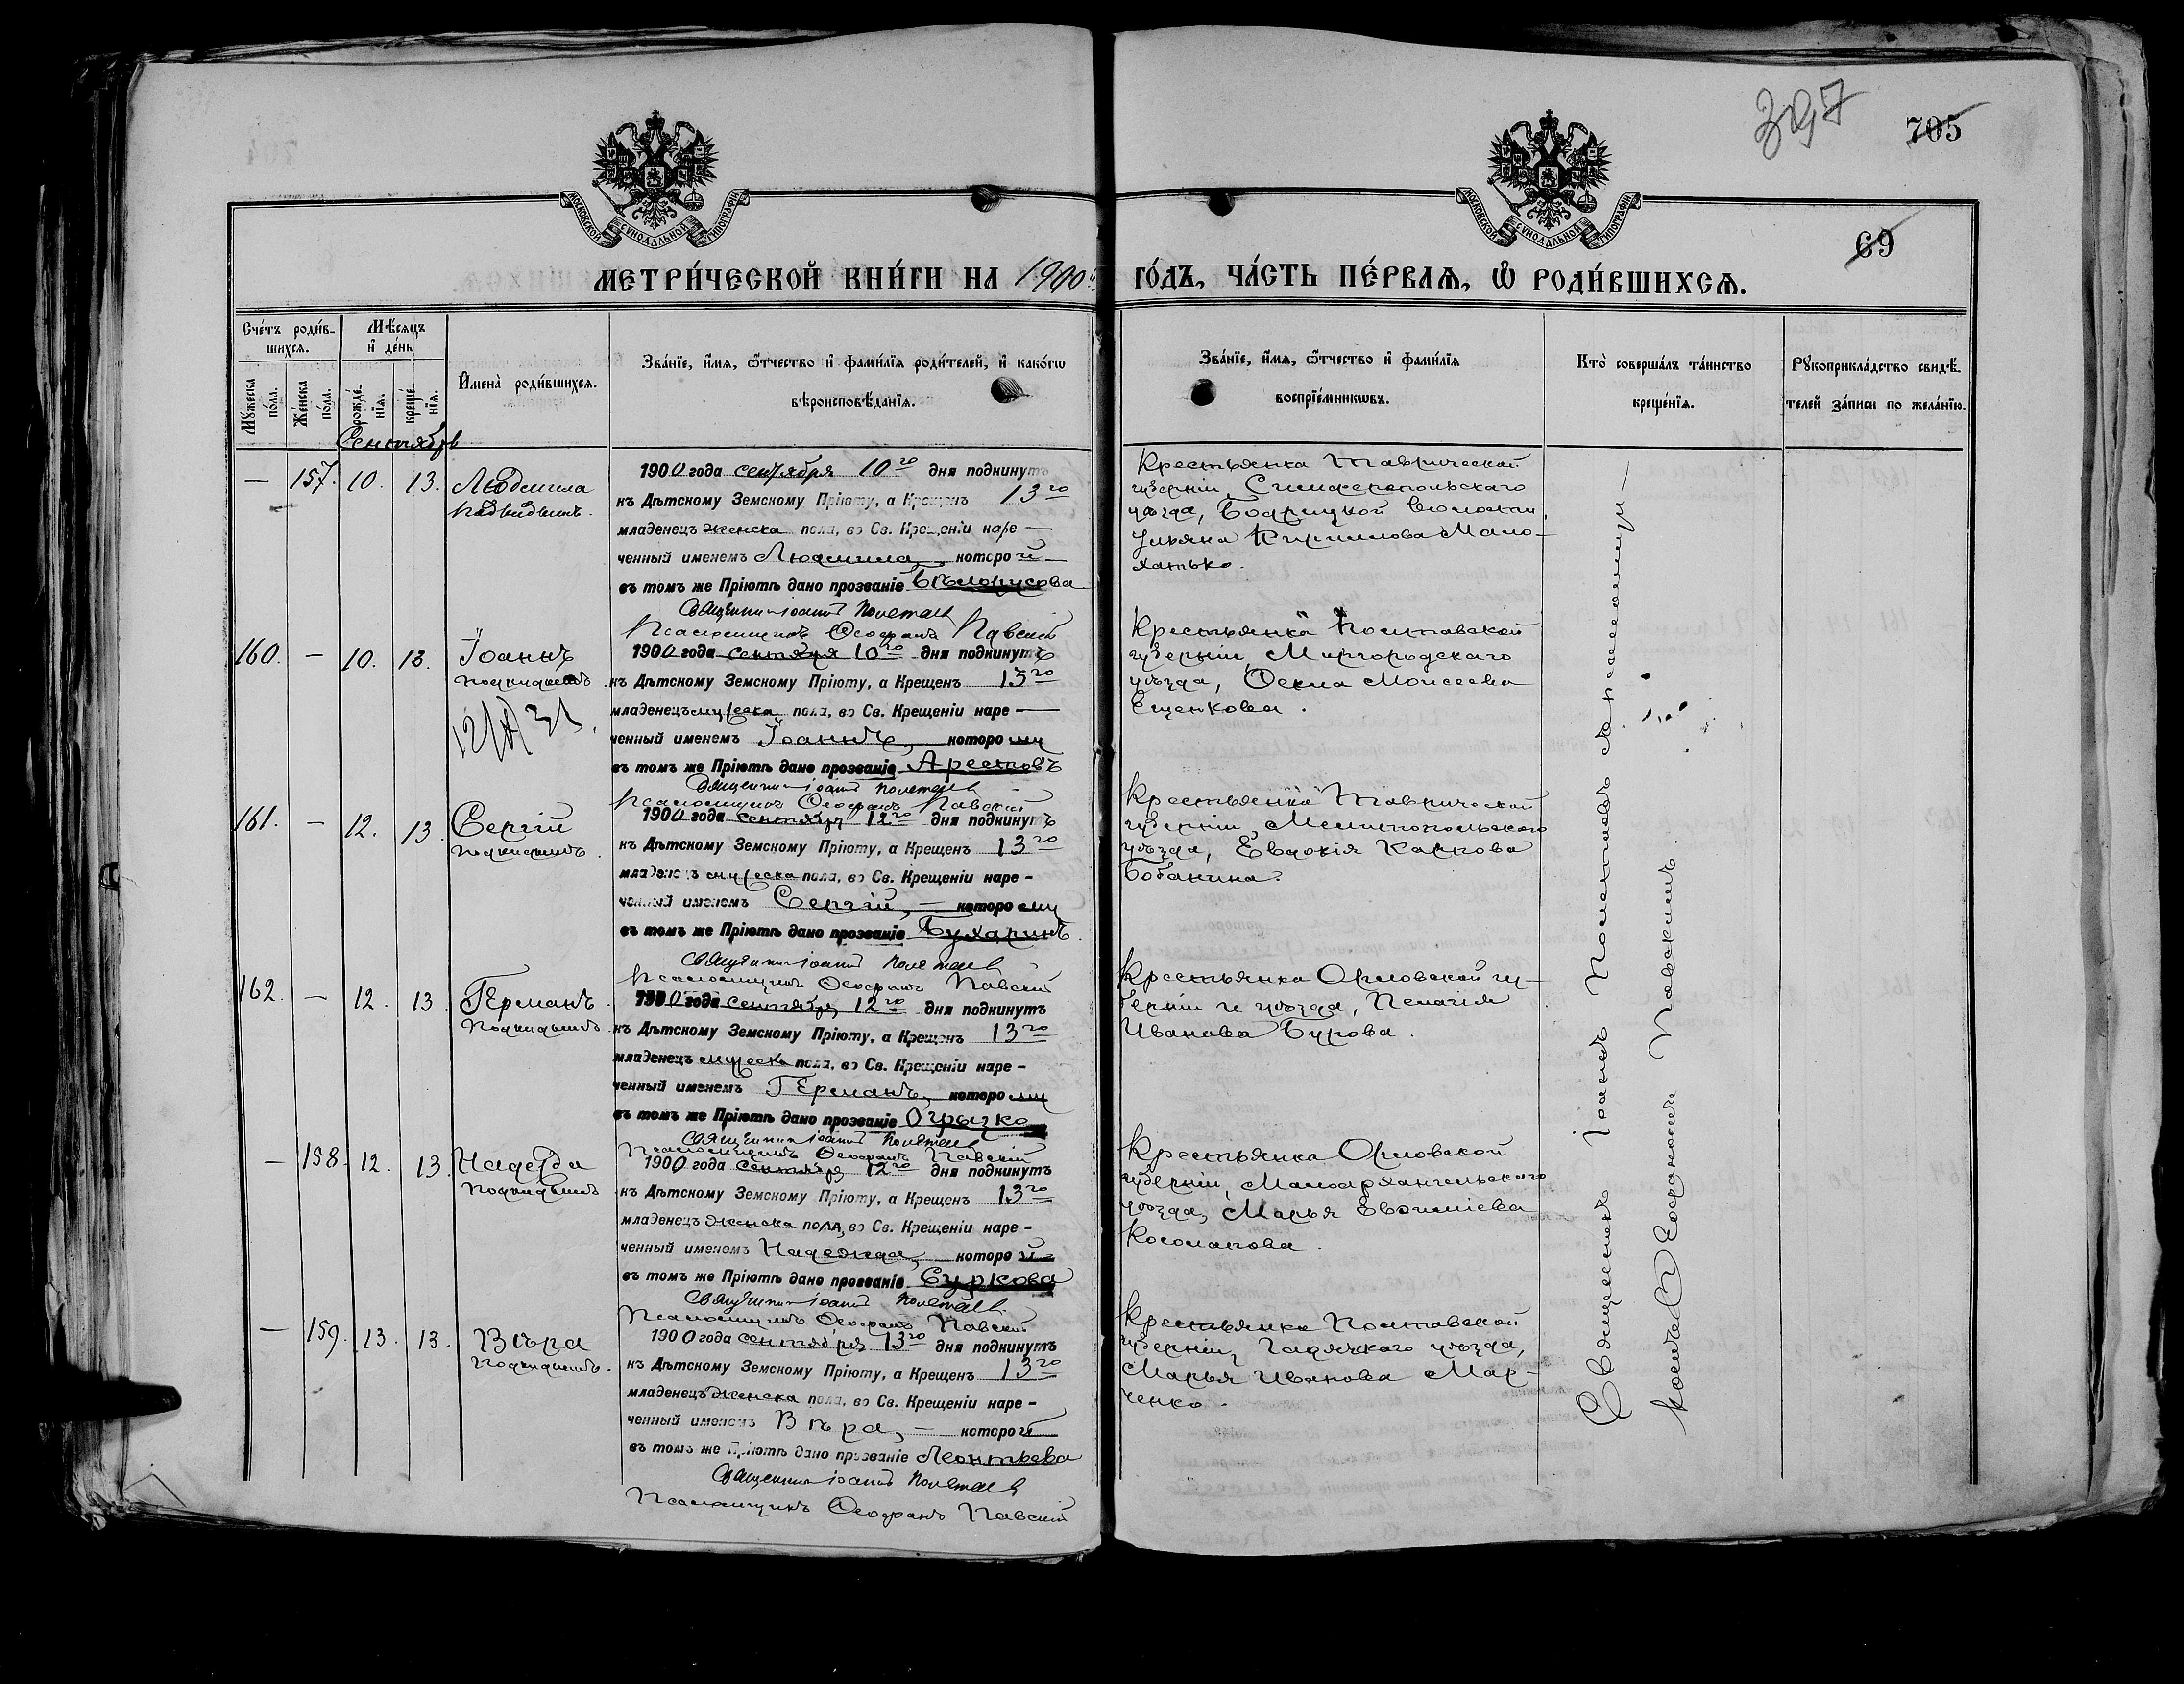 397
705
69
МОСКОВСКОЙ СУНОДАЛЬНОЙ ТИПОГРАФІИ
МОСКОВСКОЙ СУНОДАЛЬНОЙ ТИПОГРАФІИ
МЕТРИ́ЧЕСКОЙ КНИ́ГИ НА 1900й
ГО́ДЪ, ЧА́СТЬ ПЕ́РВАѦ, Ѽ РОДИ́ВШИХСѦ.
Сче́тъ роди́в-
шихсѧ.
Мꙋ́жеска по́ла.
Же́нска по́ла.
Мѣ́сѧцъ и҆ де́нь
рожде́-нїѧ.
креще́-нїѧ.
И҆мена̀ роди́вшихсѧ.
Зва́нїе, и҆́мѧ, ѻ҆́тчество и҆ фами́лїѧ роди́телей, и҆ како́гѡ
вѣроисповѣ́данїѧ.
Зва́нїе, и҆́мѧ, ѻ҆́тчество и҆ фами́лїѧ
воспрїе́мникѡвъ.
Кто̀ соверша́лъ та́инство
креще́нїѧ.
Рꙋкоприкла́дство свидѣ́-
телей за́писи по жела́нїю.
Сентябрь
— 157. 10. 13. Людмила
подкидышъ.
1900 года сентября 10го дня подкинутъ
къ Дѣтскому Земскому Пріюту, а Крещенъ 13го
младенецъ женска пола, во Св. Крещеніи наре —
ченный именемъ Людмила, которой —
въ томъ же Пріютѣ дано прозваніе Бѣлорусова
Священникъ Іоаннъ Полетаевъ
Псаломщикъ Ѳеофанъ Павскій
Крестьянка Таврической
губерніи, Симферопольскаго
уѣзда, волости,
Ульяна Кириллова Мало-
хатько.
160. — 10. 13. Іоаннъ
подкидышъ.
1900 года сентября 10го дня подкинутъ
къ Дѣтскому Земскому Пріюту, а Крещенъ 13го
младенецъ мужеска пола, во Св. Крещеніи наре —
ченный именемъ Іоаннъ, которому
въ томъ же Пріютѣ дано прозваніе Арестовъ
Священникъ Іоаннъ Полетаевъ
Псаломщикъ Ѳеофанъ Павскій
Крестьянка Полтавской
губерніи, Миргородскаго
уѣзда, Ѳекла Моисеева
Ещенкова.
161. — 12. 13. Сергій
подкидышъ.
1900 года сентября 12го дня подкинутъ
къ Дѣтскому Земскому Пріюту, а Крещенъ 13го
младенецъ мужеска пола, во Св. Крещеніи наре -
ченный именемъ Сергій, — которому
въ томъ же Пріютѣ дано прозваніе Бухаринъ.
Священникъ Іоаннъ Полетаевъ
Псаломщикъ Ѳеофанъ Павскій
Крестьянка Таврической
губерніи, Мелитопольскаго
уѣзда, Евдокія Карпова
Бобанина.
162. — 12. 13. Германъ.
Подкидышъ.
1900 года сентября 12го дня подкинутъ
къ Дѣтскому Земскому Пріюту, а Крещенъ 13го
младенецъ мужеска пола, во Св. Крещеніи наре -
ченный именемъ Германъ, которому
въ томъ же Пріютѣ дано прозваніе Огрызко
Священникъ Іоаннъ Полетаевъ
Псаломщикъ Ѳеофанъ Павскій
Крестьянка Орловской гу-
берніи и уѣзда, Пелагія
Иванова Бурова.
— 158. 12. 13. Надежда
подкидышъ.
1900 года сентября 12го дня подкинутъ
къ Дѣтскому Земскому Пріюту, а Крещенъ 13го
младенецъ женска пола, во Св. Крещеніи наре -
ченный именемъ Надежда, которой
въ томъ же Пріютѣ дано прозваніе Суркова
Священникъ Іоаннъ Полетаевъ.
Псаломщикъ Ѳеофанъ Павскій
Крестьянка Орловской
губерніи, Малоархангельскаго
уѣзда, Марья Евфиміева
Косолапова.
— 159. 13. 13. Вѣра
подкидышъ.
1900 года сентября 13го дня подкинутъ
къ Дѣтскому Земскому Пріюту, а Крещенъ 13го
младенецъ женска пола, во Св. Крещеніи наре -
ченный именемъ Вѣра, — которой
въ томъ же Пріютѣ дано прозваніе Леонтьева
Священникъ Іоаннъ Полетаевъ
Псаломщикъ Ѳеофанъ Павскій
Крестьянка Полтавской
губерніи, Гадячскаго уѣзда,
Марья Иванова Мар-
ченко.
Священникъ Іоаннъ Полетаевъ съ псаломщи —
комъ Ѳеофаномъ Павскимъ.